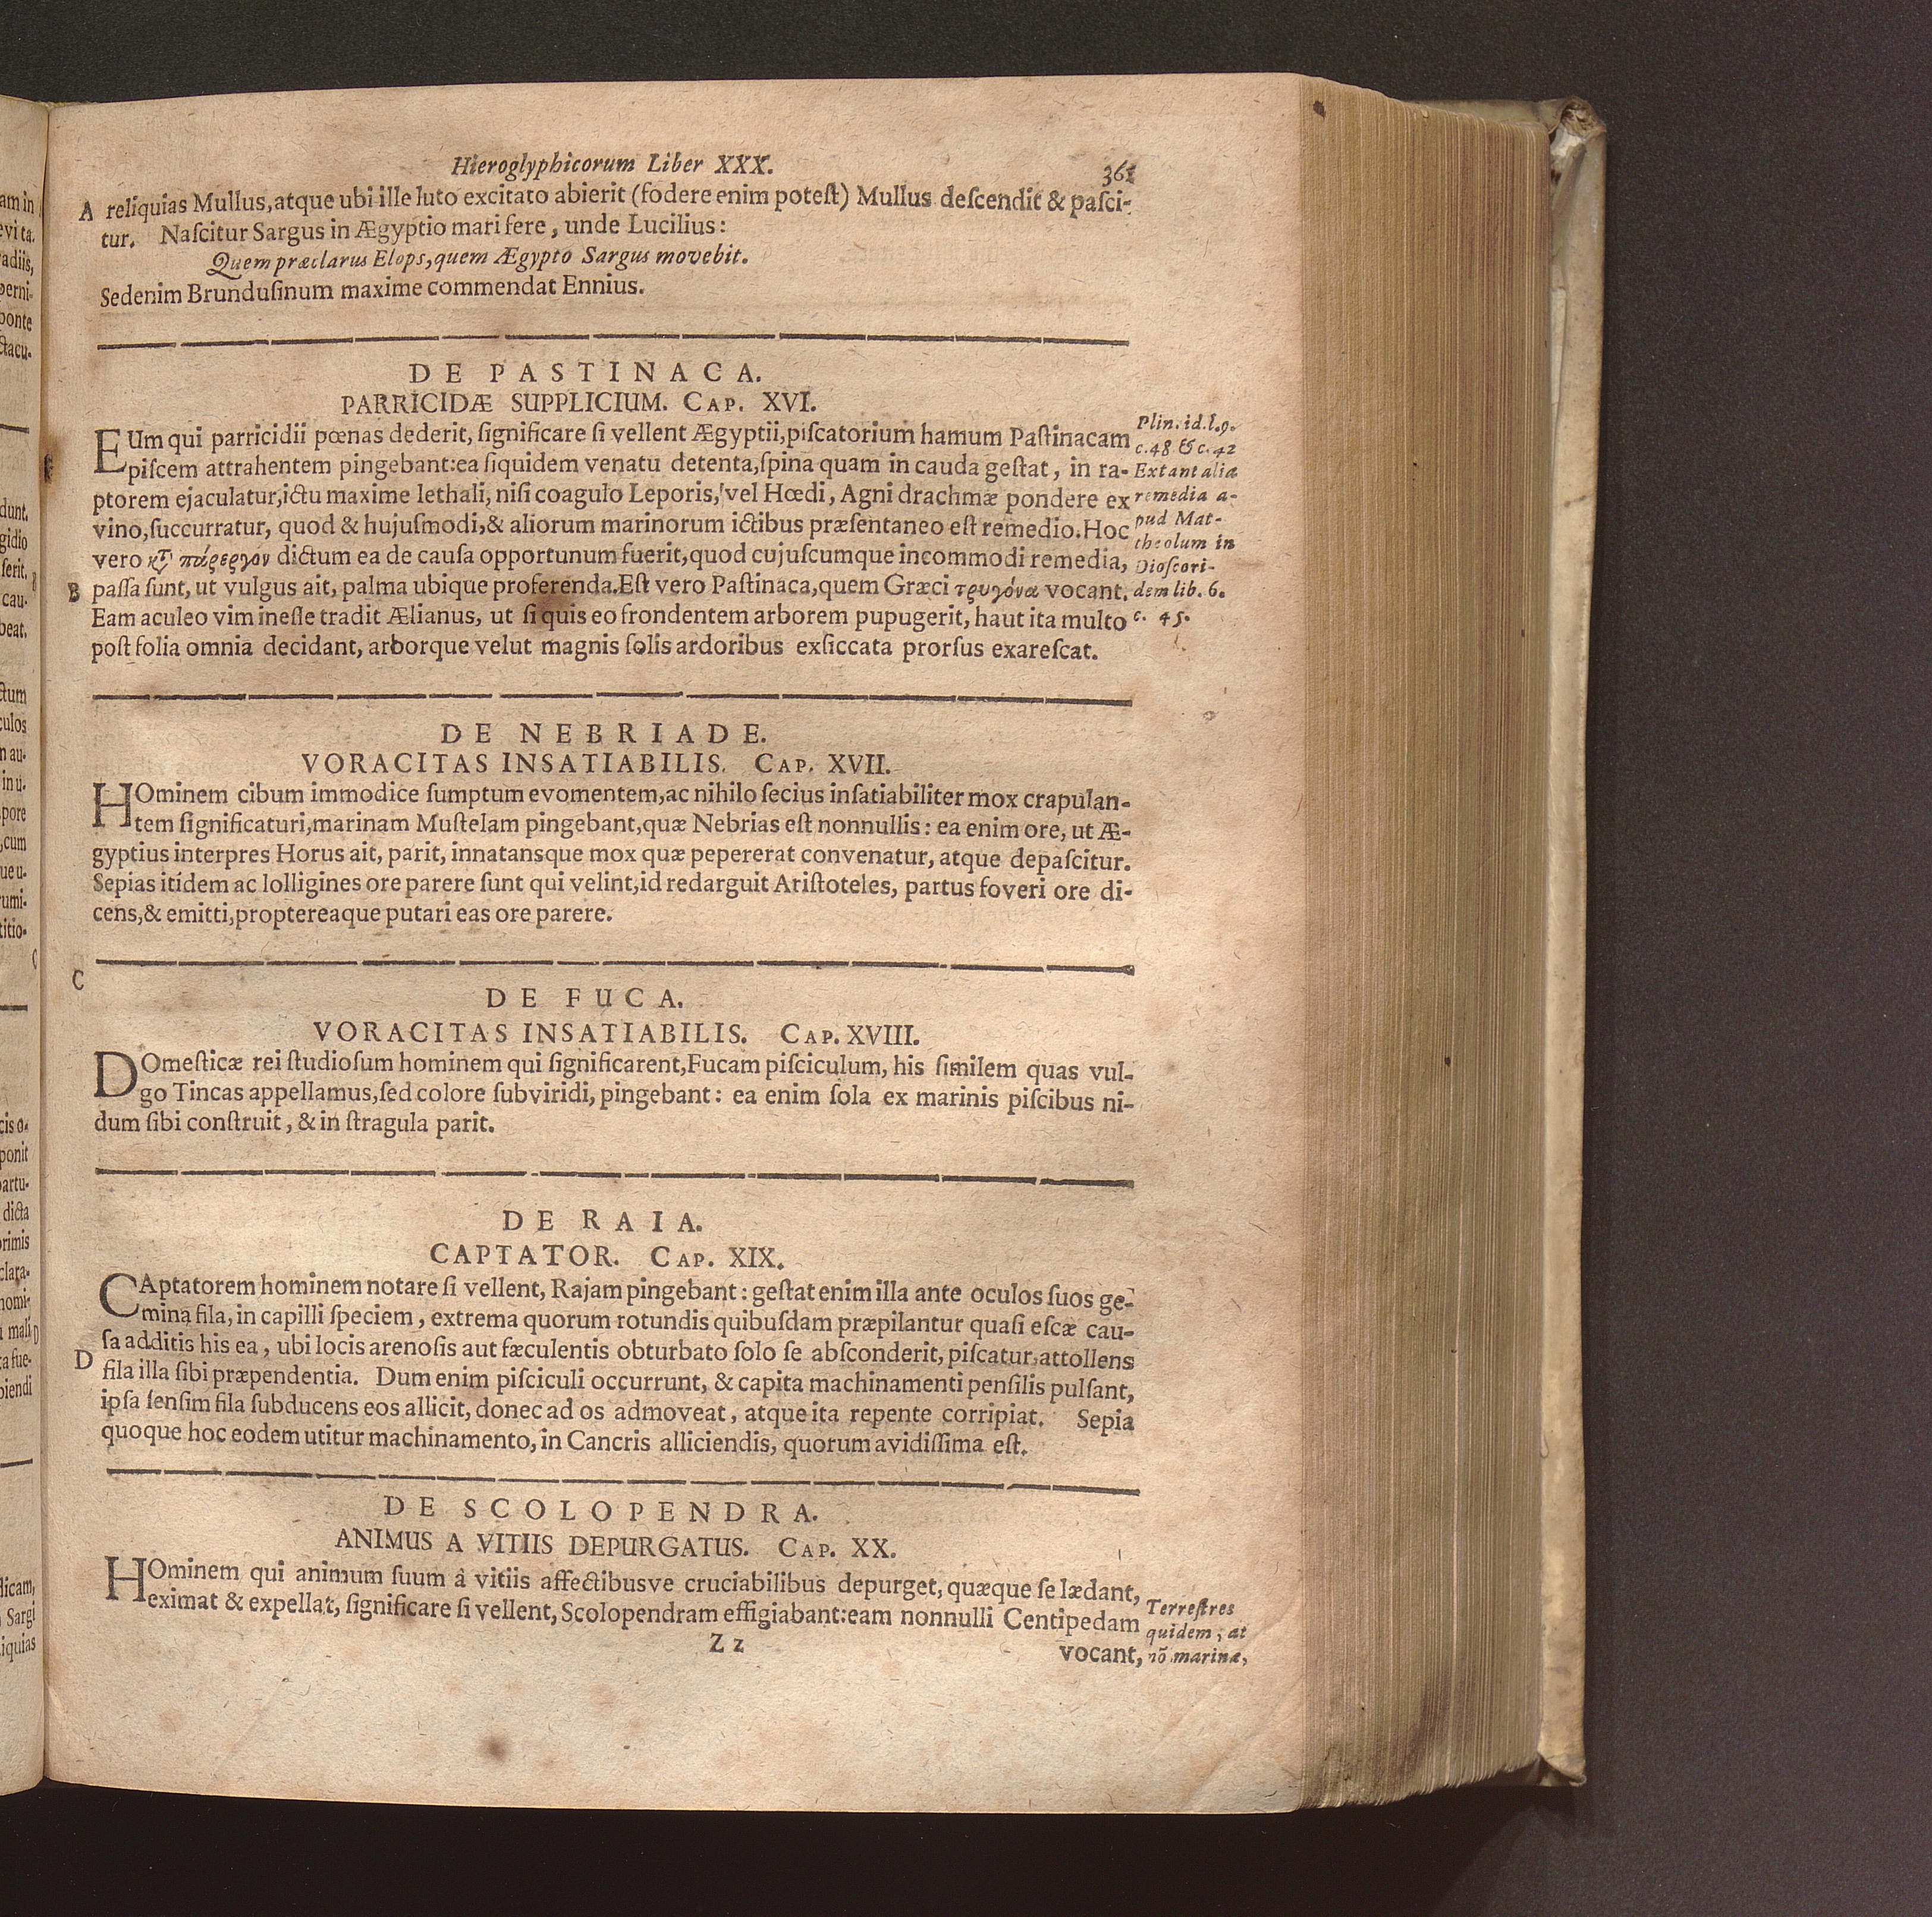 Hieroglyphicorum Liber XXX. 361
A reliquias Mullus, atque ubi ille luto excitato abierit (fodere enim poteſt) Mullus deſcendit & paſci-
tur. Naſcitur Sargus in Ægyptio mari fere, unde Lucilius:
Quem præclarus Elops, quem Ægypto Sargus movebit.
Sedenim Brunduſinum maxime commendat Ennius.
DE PASTINACA.
PARRICIDÆ SUPPLICIUM. CAP. XVI.
EUm qui parricidii pœnas dederit, ſignificare ſi vellent Ægyptii, piſcatorium hamum Paſtinacam
piſcem attrahentem pingebant: ea ſiquidem venatu detenta, ſpina quam in cauda geſtat, in ra-
ptorem ejaculatur, ictu maxime lethali, niſi coagulo Leporis, vel Hœdi, Agni drachmæ pondere ex
vino, ſuccurratur, quod & hujuſmodi, & aliorum marinorum ictibus præſentaneo eſt remedio. Hoc
vero κτ̀ πάρεργον dictum ea de cauſa opportunum fuerit, quod cujuſcumque incommodi remedia,
B paſſa ſunt, ut vulgus ait, palma ubique proferenda. Eſt vero Paſtinaca, quem Græci τρυγόνα vocant.
Eam aculeo vim ineſſe tradit Ælianus, ut ſi quis eo frondentem arborem pupugerit, haut ita multo
poſt folia omnia decidant, arborque velut magnis ſolis ardoribus exſiccata prorſus exareſcat.
Plin. id. l. 9.
c. 48 & c. 42
Extant alia
remedia a-
pud Mat-
theolum in
Dioſcori-
dem lib. 6.
c. 45.
DE NEBRIADE.
VORACITAS INSATIABILIS. CAP. XVII.
HOminem cibum immodice ſumptum evomentem, ac nihilo ſecius inſatiabiliter mox crapulan-
tem ſignificaturi, marinam Muſtelam pingebant, quæ Nebrias eſt nonnullis: ea enim ore, ut Æ-
gyptius interpres Horus ait, parit, innatansque mox quæ pepererat convenatur, atque depaſcitur.
Sepias itidem ac lolligines ore parere ſunt qui velint, id redarguit Ariſtoteles, partus foveri ore di-
cens, & emitti, proptereaque putari eas ore parere.
C
DE FUCA.
VORACITAS INSATIABILIS. CAP. XVIII.
DOmeſticæ rei ſtudioſum hominem qui ſignificarent, Fucam piſciculum, his ſimilem quas vul-
go Tincas appellamus, ſed colore ſubviridi, pingebant: ea enim ſola ex marinis piſcibus ni-
dum ſibi conſtruit, & in ſtragula parit.
DE RAIA.
CAPTATOR. CAP. XIX.
CAptatorem hominem notare ſi vellent, Rajam pingebant: geſtat enim illa ante oculos ſuos ge-
mina fila, in capilli ſpeciem, extrema quorum rotundis quibuſdam præpilantur quaſi eſcæ cau-
ſa additis his ea, ubi locis arenoſis aut fæculentis obturbato ſolo ſe abſconderit, piſcatur, attollens
D fila illa ſibi præpendentia. Dum enim piſciculi occurrunt, & capita machinamenti penſilis pulſant,
ipſa ſenſim fila ſubducens eos allicit, donec ad os admoveat, atque ita repente corripiat. Sepia
quoque hoc eodem utitur machinamento, in Cancris alliciendis, quorum avidiſſima eſt.
DE SCOLOPENDRA.
ANIMUS A VITIIS DEPURGATUS. CAP. XX.
HOminem qui animum ſuum â vitiis affectibusve cruciabilibus depurget, quæque ſe lædant,
eximat & expellat, ſignificare ſi vellent, Scolopendram effigiabant: eam nonnulli Centipedam
Z z
vocant,
Terreſtres
quidem, at
nō marinæ,